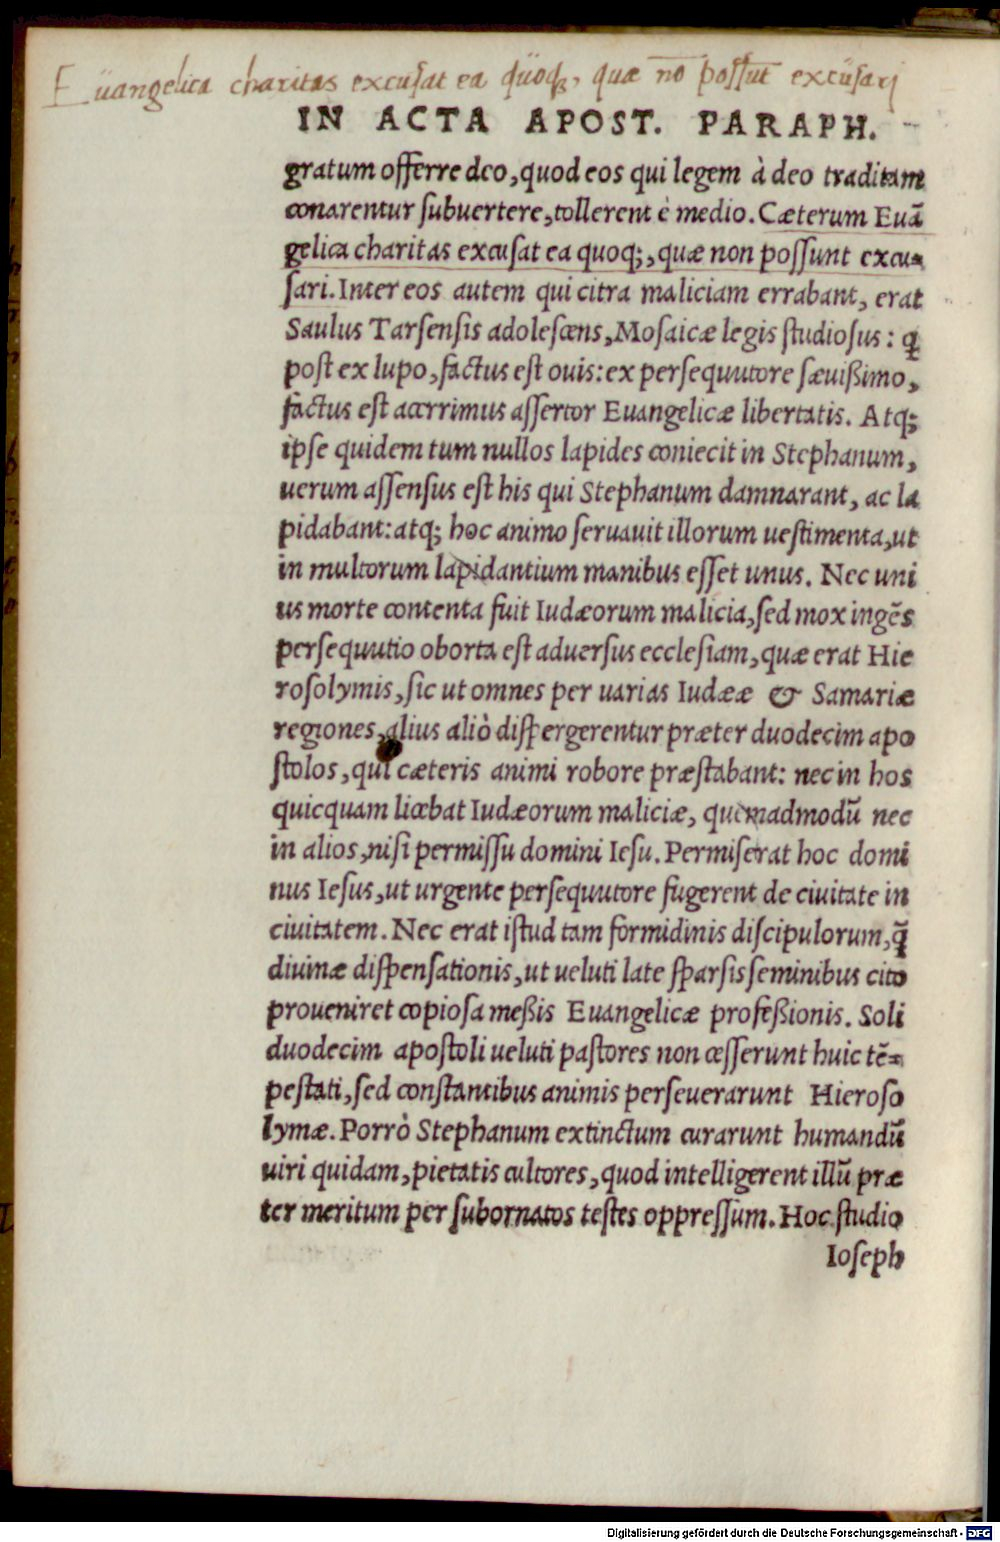 Euangelica charitas excusat ea quoq;, quæ nō possūt excusarj
IN ACTA APOST. PARAPH.
gratum offerre deo, quod eos qui legem à deo traditam
conarentur subuertere, tollerent è medio. Cæterum Euā
gelica charitas excusat ea quoq;, quæ non possunt excu-
sari. Inter eos autem qui citra maliciam errabant, erat
Saulus Tarsensis adolescens, Mosaicæ legis studiosus: q̃
post ex lupo, factus est ouis: ex persequutore sæuißimo,
factus est acerrimus assertor Euangelicæ libertatis. Atq;
ipse quidem tum nullos lapides coniecit in Stephanum,
uerum assensus est his qui Stephanum damnarant, ac la
pidabant: atq; hoc animo seruauit illorum uestimenta, ut
in multorum lapidantium manibus esset unus. Nec uni
us morte contenta fuit Iudæorum malicia, sed mox ingẽs
persequutio oborta est aduersus ecclesiam, quæ erat Hie
rosolymis, sic ut omnes per uarias Iudææ & Samariæ
regiones, alius aliò dispergerentur præter duodecim apo
stolos, qui cæteris animi robore præstabant: nec in hos
quicquam licebat Iudæorum maliciæ, quemadmodũ nec
in alios, nisi permissu domini Iesu. Permiserat hoc domi
nus Iesus, ut urgente persequutore fugerent de ciuitate in
ciuitatem. Nec erat istud tam formidinis discipulorum, q̃
diuinæ dispensationis, ut ueluti late sparsis seminibus cito
proueniret copiosa meßis Euangelicæ profeßionis. Soli
duodecim apostoli ueluti pastores non cesserunt huic tẽ-
pestati, sed constantibus animis perseuerarunt Hieroso
lymæ. Porrò Stephanum extinctum curarunt humandũ
uiri quidam, pietatis cultores, quod intelligerent illũ præ
ter meritum per subornatos testes oppressum. Hoc studio
Ioseph
Digitalisierung gefördert durch die Deutsche Forschungsgemeinschaft - DFG